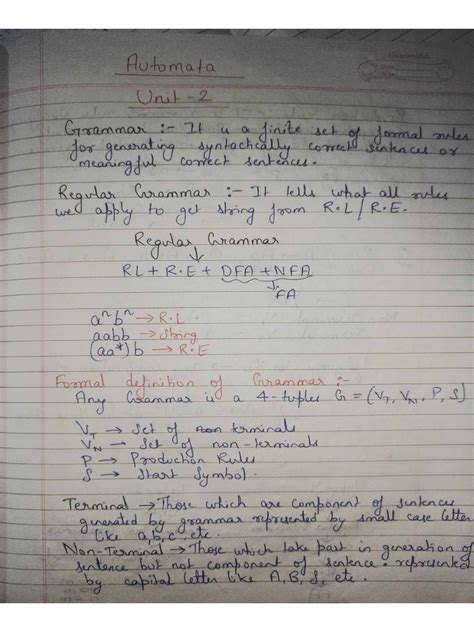 Automata
Unit - 2
Grammar :- It is a finite set of formal rules
for generating syntactically correct sentences or
meaningful correct sentences.
Regular Grammar :- It tells what all rules
we apply to get string from R.L / R.E.
Regular Grammar
↓
RL + R.E + DFA + NFA
↳ FA
aⁿbⁿ → R.L
aabb → string
(aa*)b → R.E
Formal definition of Grammar :-
Any Grammar is a 4-tuples G = (V_T, V_N, P, S)
V_T → Set of terminals
V_N → Set of non-terminals
P → Production Rules
S → Start Symbol.
Terminal → Those which are component of sentences
generated by grammar represented by small case letter
like a, b, c etc.
Non-Terminal → Those which take part in generation of
sentence but not component of sentence. represented
by capital letter like A, B, S, etc.